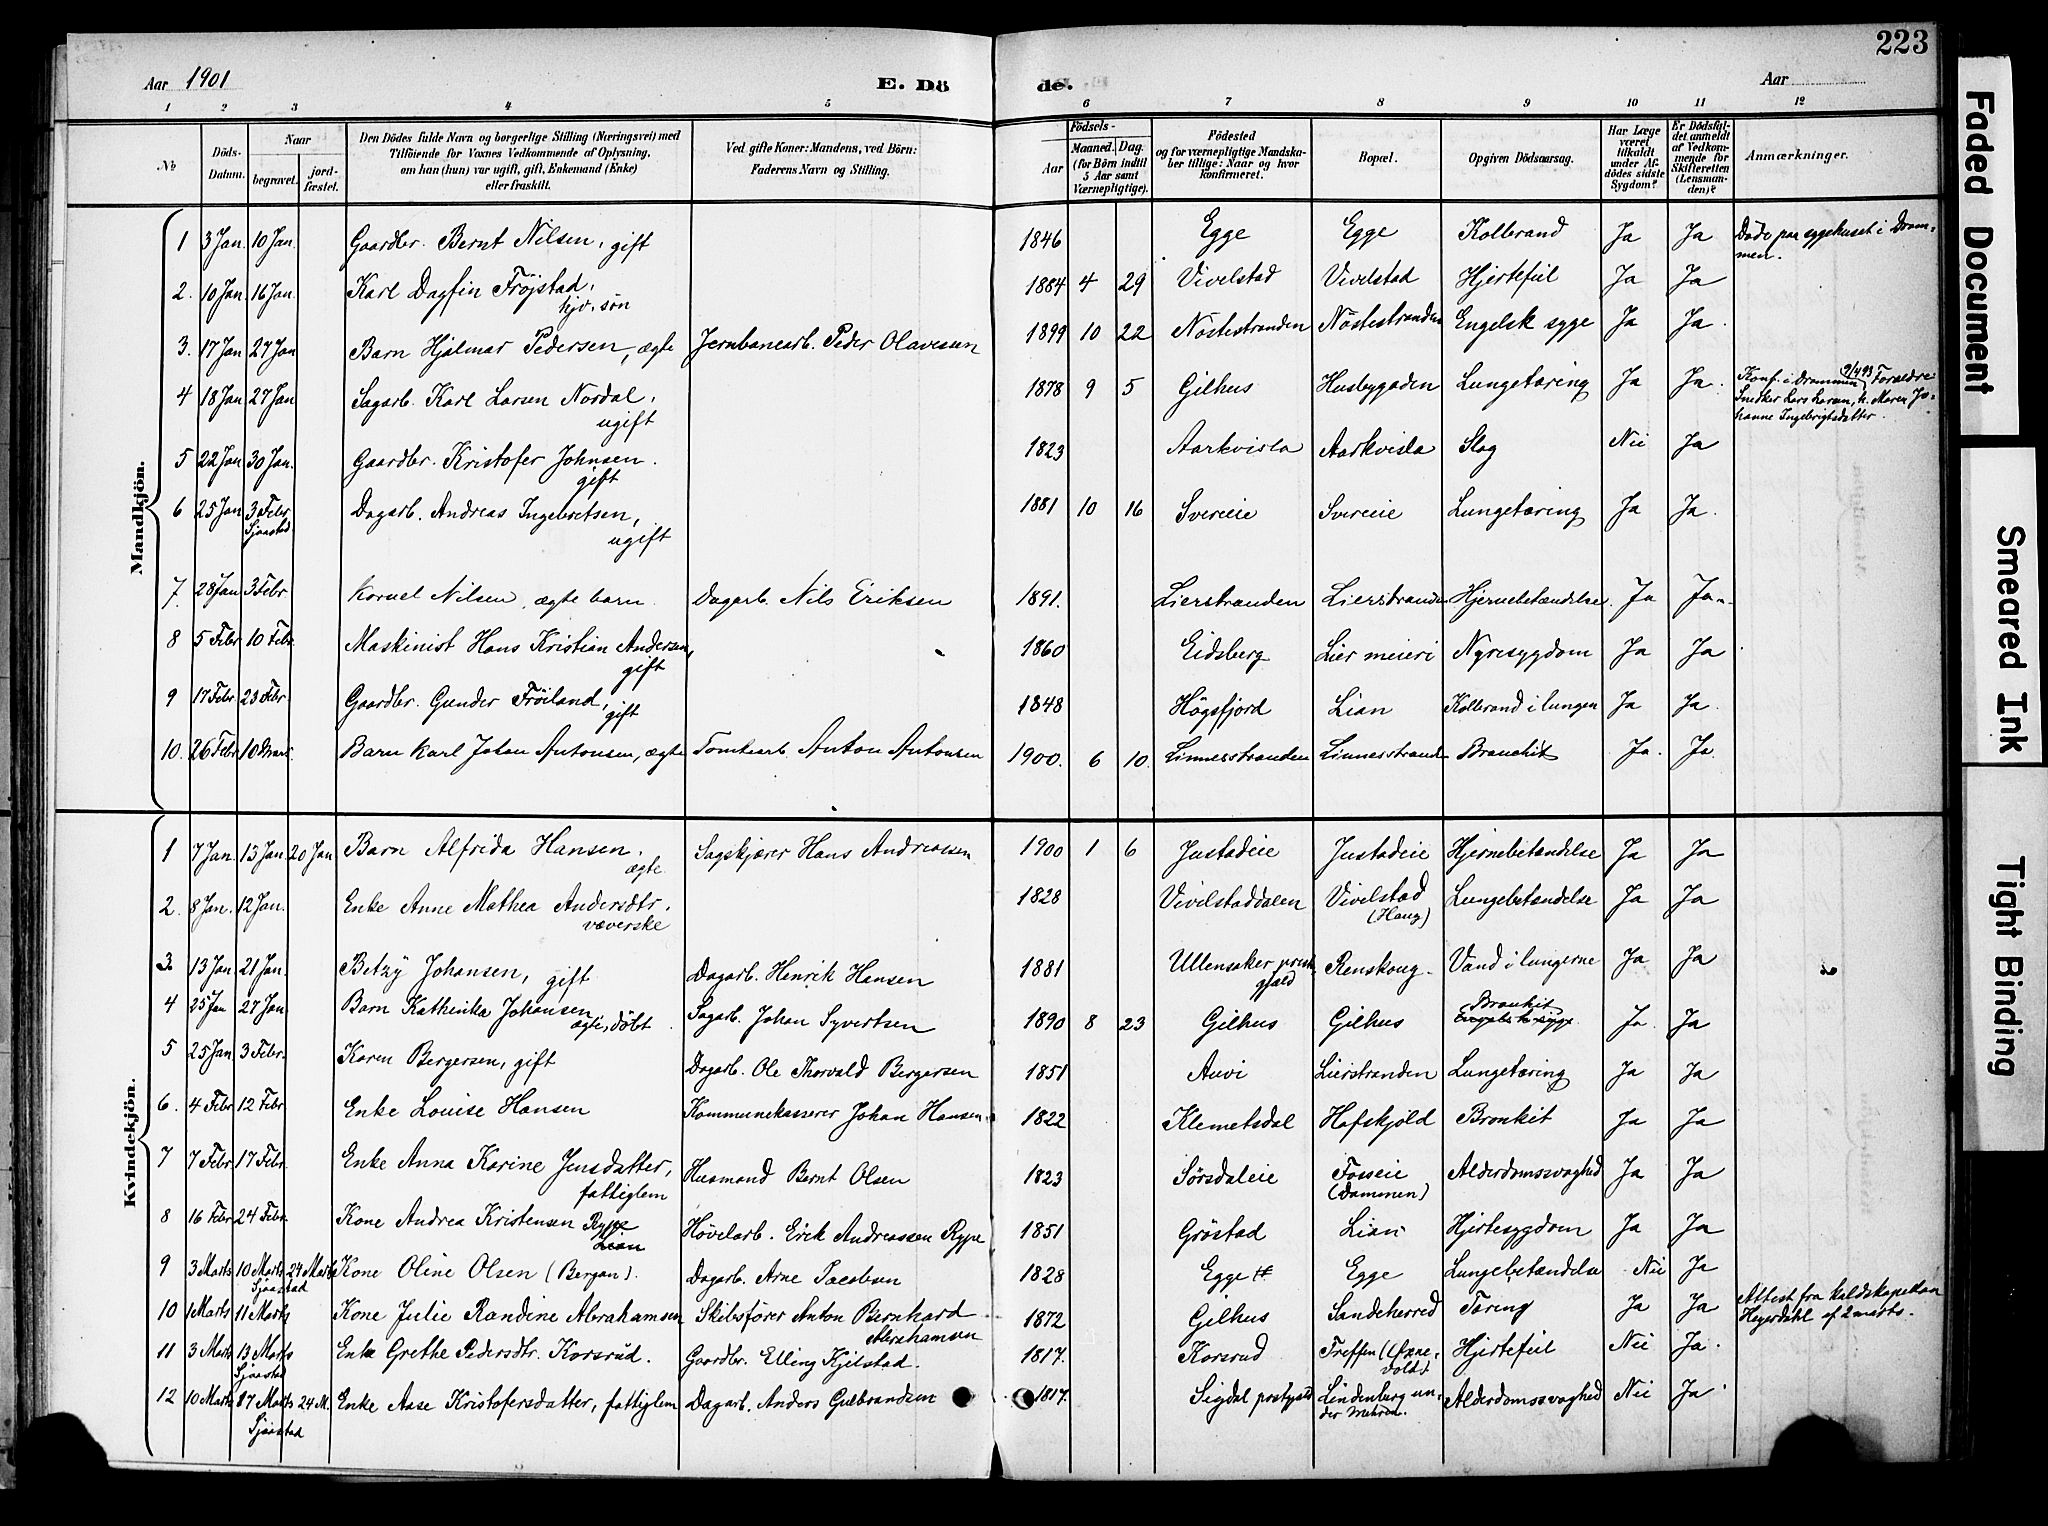 223
Aar 1901 E. Döde. Aar
1 2 3 4 5 6 7 8 9 10 11 12
№
Döds-Datum.
Naar
begravet.
jordfæstet.
Den Dödes fulde Navn og borgerlige Stilling (Næringsvei) med
Tilföiende for Voxnes Vedkommende af Oplysning,
om han (hun) var ugift, gift, Enkemand (Enke)
eller fraskilt.
Ved gifte Koner: Mandens, ved Börn:
Faderens Navn og Stilling.
Födsels-
Aar
Maaned. Dag.
(for Börn indtil
5 Aar samt
Værnepligtige).
Födested
og for værnepligtige Mandskaber tillige: Naar og hvor
konfirmeret.
Bopæl.
Opgiven Dödsaarsag.
Har Læge været tilkaldt under Afdödes sidste Sygdom?
Er Dödsfaldet anmeldt af Vedkommende for Skifteretten (Lensmanden)?
Anmærkninger.
Mandkjön.
1 3 Jan. 10 Jan. Gaardbr. Bernt Nilsen, gift 1846 Egge Egge Kolbrand Ja Ja Döde paa sygehuset i Drammen.
2. 10 Jan 16 Jan. Karl Dagfin Fröjstad, hjv. sön 1884 4 29 Vivelstad Vivelstad Hjertefeil Ja Ja
3. 17 Jan 27 Jan Barn Hjalmar Pedersen, ægte Jernbanearb. Peder Olavesen 1899 10 22 Nöstestranden Nöstestranden Engelsk syge Ja Ja.
4 18 Jan 27 Jan Sagarb. Karl Larsen Nordal, ugift 1878 9 5 Gilhus Husbygaden Lungetæring Ja Ja. Konf. i Drammen 9/4 93 Forældre: Snedker Lars Larsen, h. Maren Johanne Ingebrigtsdatter.
5 22 Jan 30 Jan. Gaardbr. Kristofer Johnsen. gift 1823 Aarkvisla Aarkvisla Slag Nei Ja
6 25 Jan 3 Febr Sjaastad Dagarb. Andreas Ingebretsen, ugift 1881 10 16 Svereie Svereie Lungetæring Ja Ja.
7. 28 Jan 3 Febr Kornel Nilsen, ægte barn. Dagarb. Nils Eriksen 1891. Lierstranden Lierstranden Hjernebetændelse. Ja Ja
8 5 Febr 10 Febr Maskinist Hans Kristian Andersen, gift 1860 Eidsberg Lier meieri Nyresygdom Ja Ja
9 17 Febr 23 Febr. Gaardbr. Gunder Fröiland, gift 1848 Högsfjord Lian Kolbrand i lungen Ja Ja.
10. 26 Febr 10 Mars. Barn Karl Johan Antonsen, ægte Tomtearb. Anton Antonsen 1900. 6 10. Linnesstranden Linnesstranden Bronchit Ja. Ja.
Kvindekjön.
1 7 Jan. 13 Jan. 20 Jan Barn Alfrida Hansen, ægte Sagskjærer Hans Andreassen 1900 1 6 Justadeie Justadeie Hjernebetændelse Ja Ja
2. 8 Jan. 12 Jan. Enke Anne Mathea Andersdtr. væverske 1828 Vivelstaddalen Vivelstad (Haug) Lungebetændelse Ja Ja
3. 13 Jan 21 Jan. Betzy Johansen, gift Dagarb. Henrik Hansen 1881 Ullensaker prestgjæld Renskoug Vand i lungerne Ja Ja
4 25 Jan 27 Jan Barn Kathinka Johansen, ægte, döbt. Sagarb. Johan Syvertsen 1890 8 23 Gilhus Gilhus Bronkit Engelsk syge Ja. Ja
5 25 Jan 3 Febr. Karen Bergersen, gift Dagarb. Ole Thorvald Bergersen 1851 Auvi Lierstranden Lungetæring Ja Ja
6. 4 Febr 12 Febr Enke Louise Hansen Kommunekasserer Johan Hansen. 1822 Klemetsdal Hafskjöld Bronkit Ja Ja
7 7 Febr 17 Febr. Enke Anna Karine Jensdatter, fattiglem Husmand Bernt Olsen 1823 Sörsdaleie Fosseie (Dammen) Alderdomssvaghed Ja Ja
8 16 Febr 24 Febr. Kone Andrea Kristensen Rype Lian Hövelarb. Erik Andreassen Rype 1851 Gröstad Lian Hjertesygdom Ja Ja
9 3 Marts 10 Marts Sjaastad 24 Marts Kone Oline Olsen (Bergan). Dagarb. Arne Jacobsen 1828 Egge Egge Lungebetændelse Nei Ja
10 1 Marts 11 Marts Kone Julie Randine Abrahamsen Skibsförer Anton Bernhard Abrahamsen 1872 Gilhus Sandeherred Tæring Ja Ja Attest fra kaldskapellan Hagerdahl af 2 marts.
11 3 Marts 13 Marts Sjaastad Enke Grethe Pedersdtr. Korsrud. Gaardbr. Elling Kjilstad. 1817. Korsrud Treffen Hjertefeil Nei Ja.
12 10 Marts 17 Marts Sjaastad 24 M. Enke Aase Kristofersdatter, fattiglem Dagarb. Anders Gulbrandsen 1817. Sigdal prestgjæld Lindenburg under Mehren. Alderdomssvaghed Nei Ja
Faded Document
Smeared Ink
Tight Binding